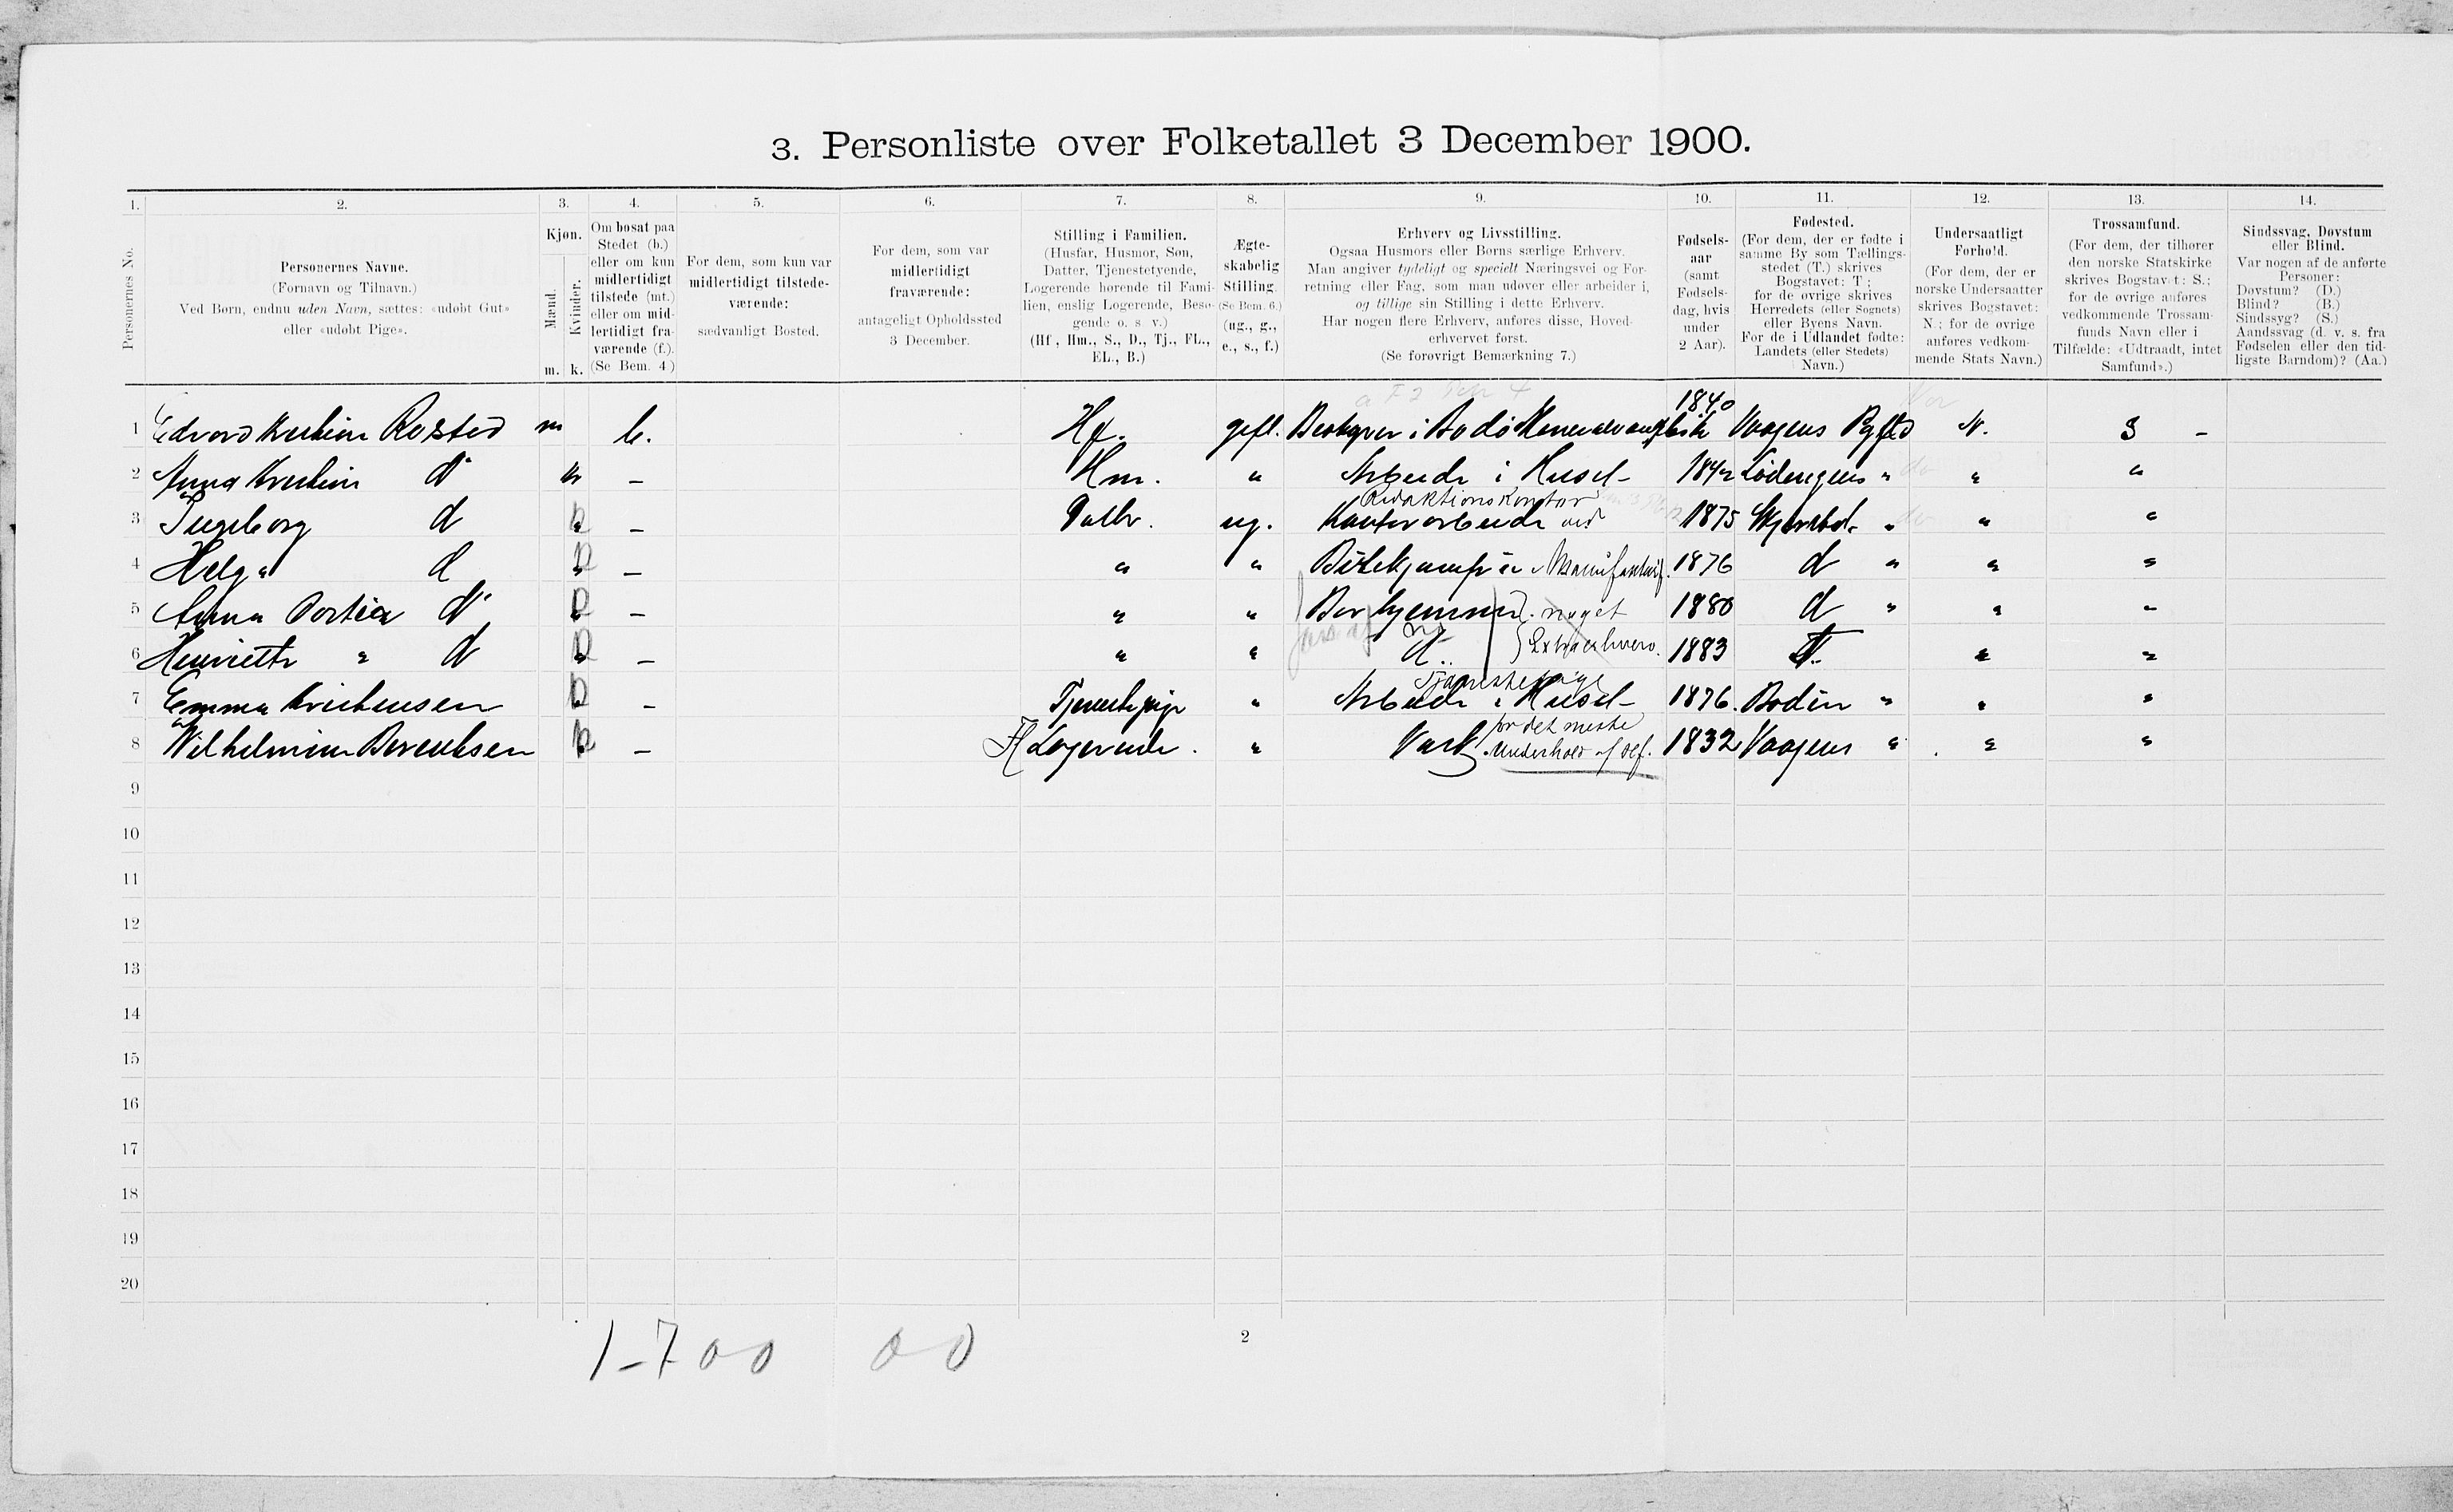 3. Personliste over Folketallet 3 December 1900.
1. 2. 3. 4. 5. 6. 7. 8. 9. 10. 11. 12. 13. 14.
Personernes No.
Personernes Navne.
(Fornavn og Tilnavn.)
Ved Børn, endnu uden Navn, sættes: «udøbt Gut»
eller «udøbt Pige».
Kjøn.
Mænd.
Kvinder.
m. k.
Om bosat paa
Stedet (b.)
eller om kun
midlertidigt
tilstede (mt.)
eller om mid-
lertidigt fra-
værende (f.).
(Se Bem. 4.)
For dem, som kun var
midlertidigt tilstede-
værende:
sædvanligt Bosted.
For dem, som var
midlertidigt
fraværende:
antageligt Opholdssted
3 December.
Stilling i Familien.
(Husfar, Husmor, Søn,
Datter, Tjenestetyende,
Logerende hørende til Fami-
lien, enslig Logerende, Besø-
gende o. s v.)
(Hf, Hm., S., D., Tj., FL.,
EL., B.)
Ægte-
skabelig
Stilling.
(Se Bem. 6.)
(ug., g.,
e., s., f.)
Erhverv og Livsstilling.
Ogsaa Husmors eller Børns særlige Erhverv.
Man angiver tydeligt og specielt Næringsvei og For-
retning eller Fag, som man udøver eller arbeider i,
og tillige sin Stilling i dette Erhverv.
Har nogen flere Erhverv, anføres disse, Hoved-
erhvervet først.
(Se forøvrigt Bemærkning 7.)
Fødsels-
aar
(samt
Fødsels-
dag, hvis
under
2 Aar).
Fødested.
(For dem, der er fødte i
samme By som Tællings-
stedet (T.) skrives
Bogstavet: T;
for de øvrige skrives
Herredets (eller Sognets)
eller Byens Navn.
For de i Udlandet fødte:
Landets (eller Stedets)
Navn.)
Undersaatligt
Forhold.
(For dem, der er
norske Undersaatter
skrives Bogstavet:
N.; for de øvrige
anføres vedkom-
mende Stats Navn.)
Trossamfund.
(For dem, der tilhører
den norske Statskirke
skrives Bogstavet: S.;
for de øvrige anføres
vedkommende Trossam-
funds Navn eller i
Tilfælde: «Udtraadt, intet
Samfund».)
Sindssvag, Døvstum
eller Blind.
Var nogen af de anførte
Personer:
Døvstum? (D.)
Blind? (B.)
Sindssyg? (S.)
Aandssvag (d. v. s. fra
Fødselen eller den tid-
ligste Barndom)? (Aa.)
1 Rosted m b. Hf. gift. i Bodø 1840 Vaagens N. S -
2 Anna d° k - Hm. " Arbeide i Huset - 1842 Lødingens " " "
Redaktionskontor
3 Ingeborg d k - Datter. ug. Kontorarbeide ved 1875 " " "
4 Helga d k - " " Manufaktur 1876 d " " "
5 Anna d° k - " " noget 1880 d " " "
6 Henriette " d k - " " d° 1883 T. " "
Tjenestepige
7 Emma k - Tjenestepige " Arbeide i Huset - 1876. Bodin " " "
for det meste
8 Wilhelmine k - Logerende . " Underhold af 1832 Vaagens " " "
9
10
11
12
13
14
15
16
17
18
19
20
1-7 0 0 0 0
2